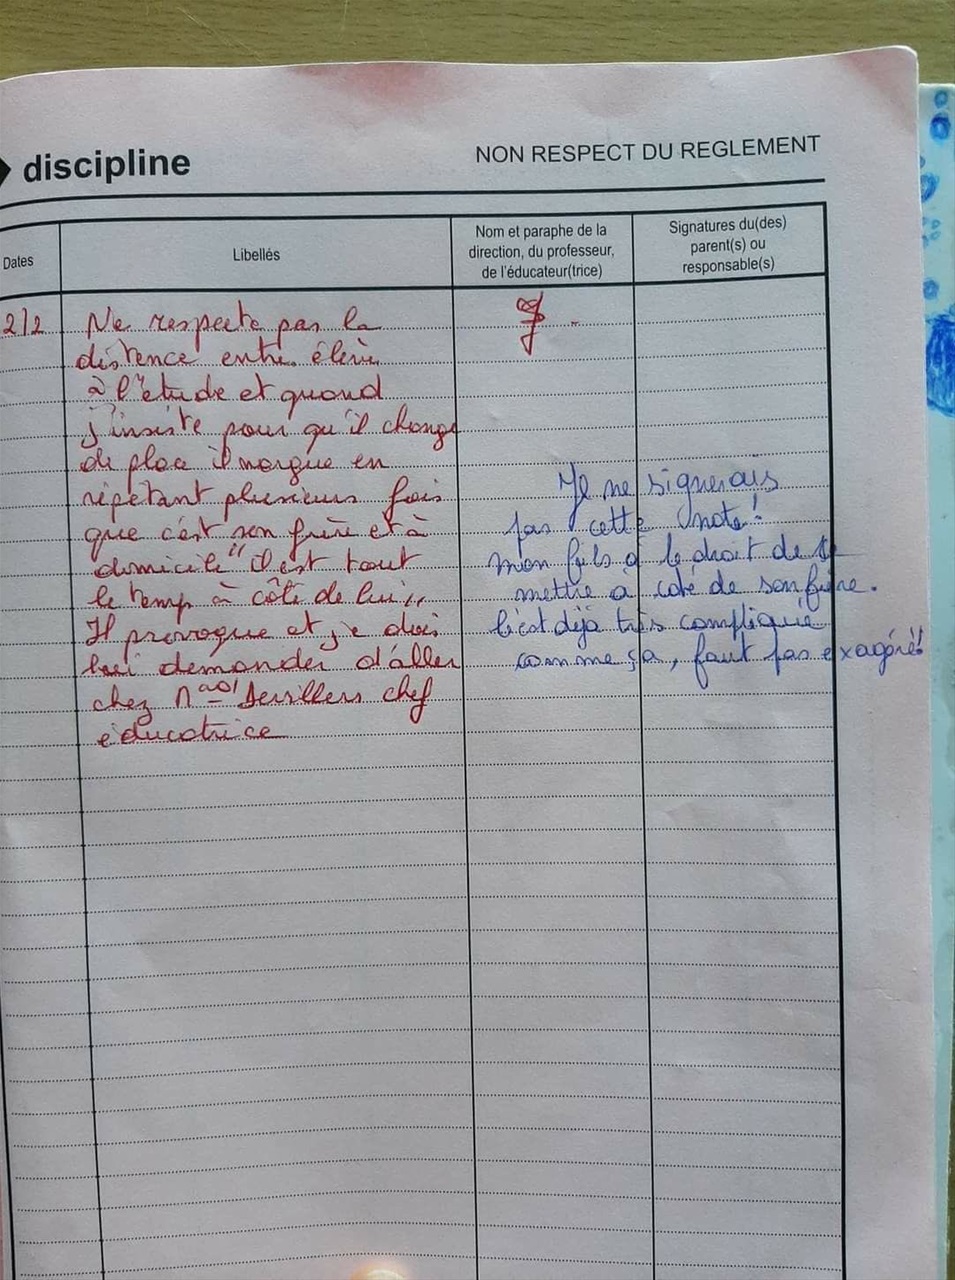 discipline
NON RESPECT DU REGLEMENT
Dates
Libellés
Nom et paraphe de la
direction, du professeur,
de l'éducateur(trice)
Signatures du(des)
parent(s) ou
responsable(s)
2/2
Ne respecte pas la
distence entre élève
à l'étude et quand
j'insiste pour qu'il change
de place il nargue en
répétant plusieurs fois
que c'est son frère et à
domicile "il est tout
le temp à côté de lui"
Il provoque et je dois
lui demander d'aller
chez chef
éducatrice
Je ne signerais
pas cette note!
mon fils a le droit de
mettre a coté de son frère.
c'est déjà très compliquée
comme ça, faut pas exagéré!